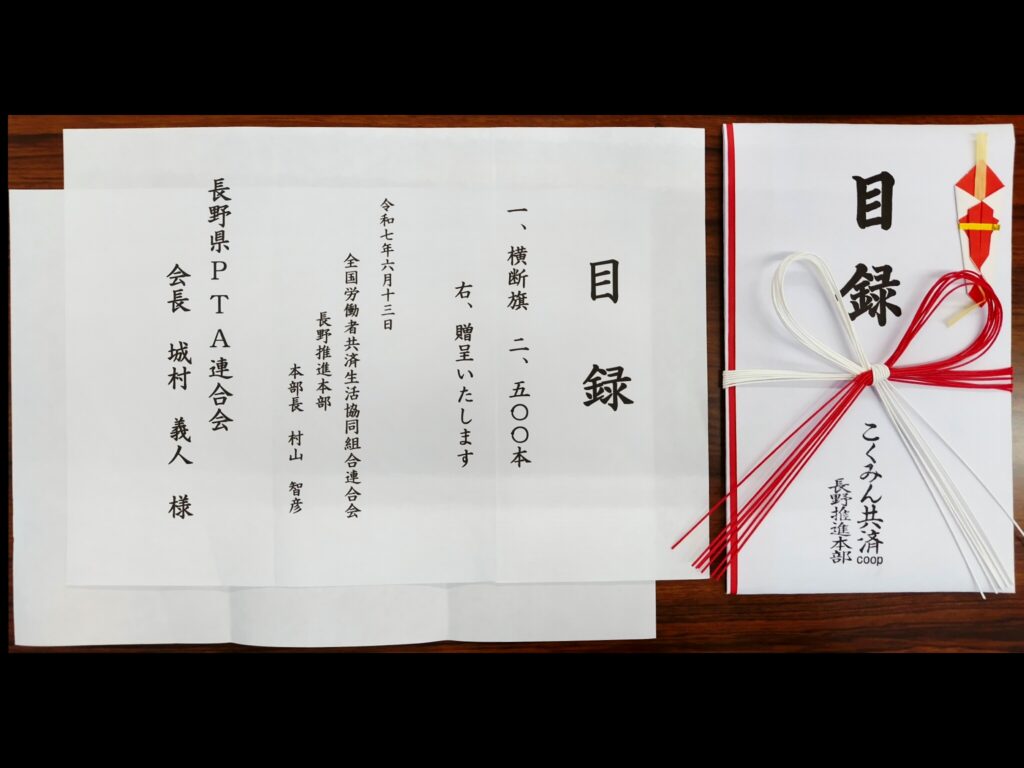 目録
一、横断旗 二、五〇〇本
右、贈呈いたします
令和七年六月十三日
全国労働者共済生活協同組合連合会
長野推進本部
本部長 村山 智彦
長野県PTA連合会
会長 城村 義人 様
目録
こくみん共済coop
長野推進本部